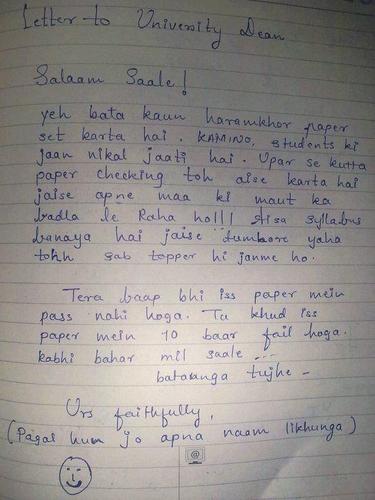 Letter to University Dean
Salaam Saale!
yeh bata kaun haramkhor paper
set karta hai. KAMINO, students ki
jaan nikal jaati hai. Upar se kutta
paper checking toh aise karta hai
jaise apne maa ki maut ka
badla le Raha ho!!! syllabus
banaya hai jaise tumhare yaha
tohh sab topper hi janme ho.
Tera baap bhi iss paper mein
pass nahi hoga. Tu khud iss
paper mein 10 baar fail hoga.
kabhi bahar mil saale ---
bataunga tujhe -
Urs faithfully,
(Pagal hum jo apna naam likhunga)
@